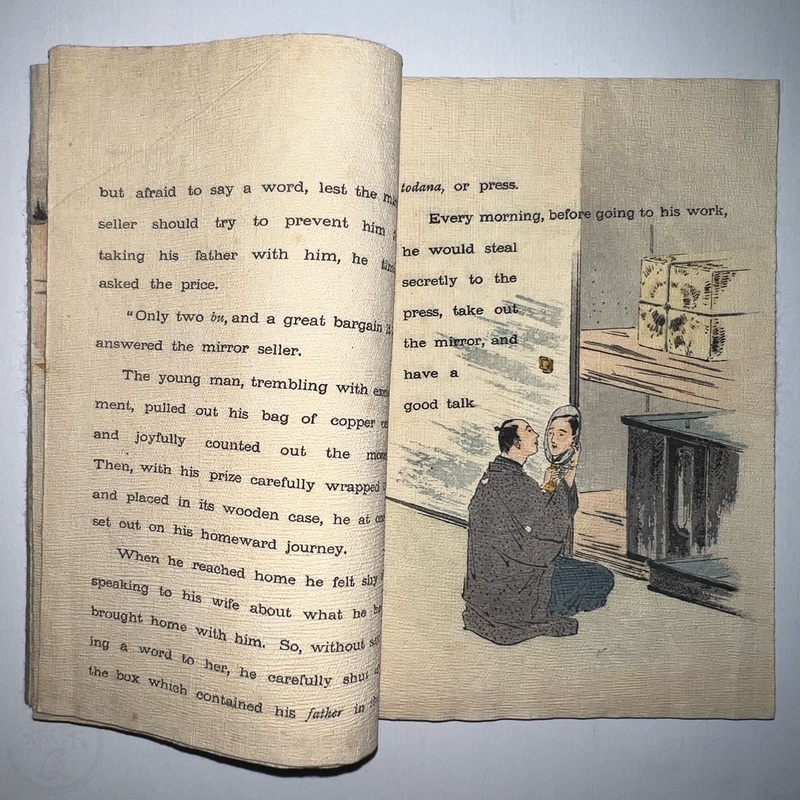 but afraid to say a word, lest the
seller should try to prevent him
taking his father with him, he
asked the price.
"Only two bu, and a great bargain
answered the mirror seller.
The young man, trembling with
ment, pulled out his bag of copper
and joyfully counted out the
Then, with his prize carefully wrapped
and placed in its wooden case, he at
set out on his homeward journey.
When he reached home he felt shy
speaking to his wife about what he
brought home with him. So, without
ing a word to her, he carefully shut
the box which contained his father in
todana, or press.
Every morning, before going to his work,
he would steal
secretly to the
press, take out
the mirror, and
have a
good talk